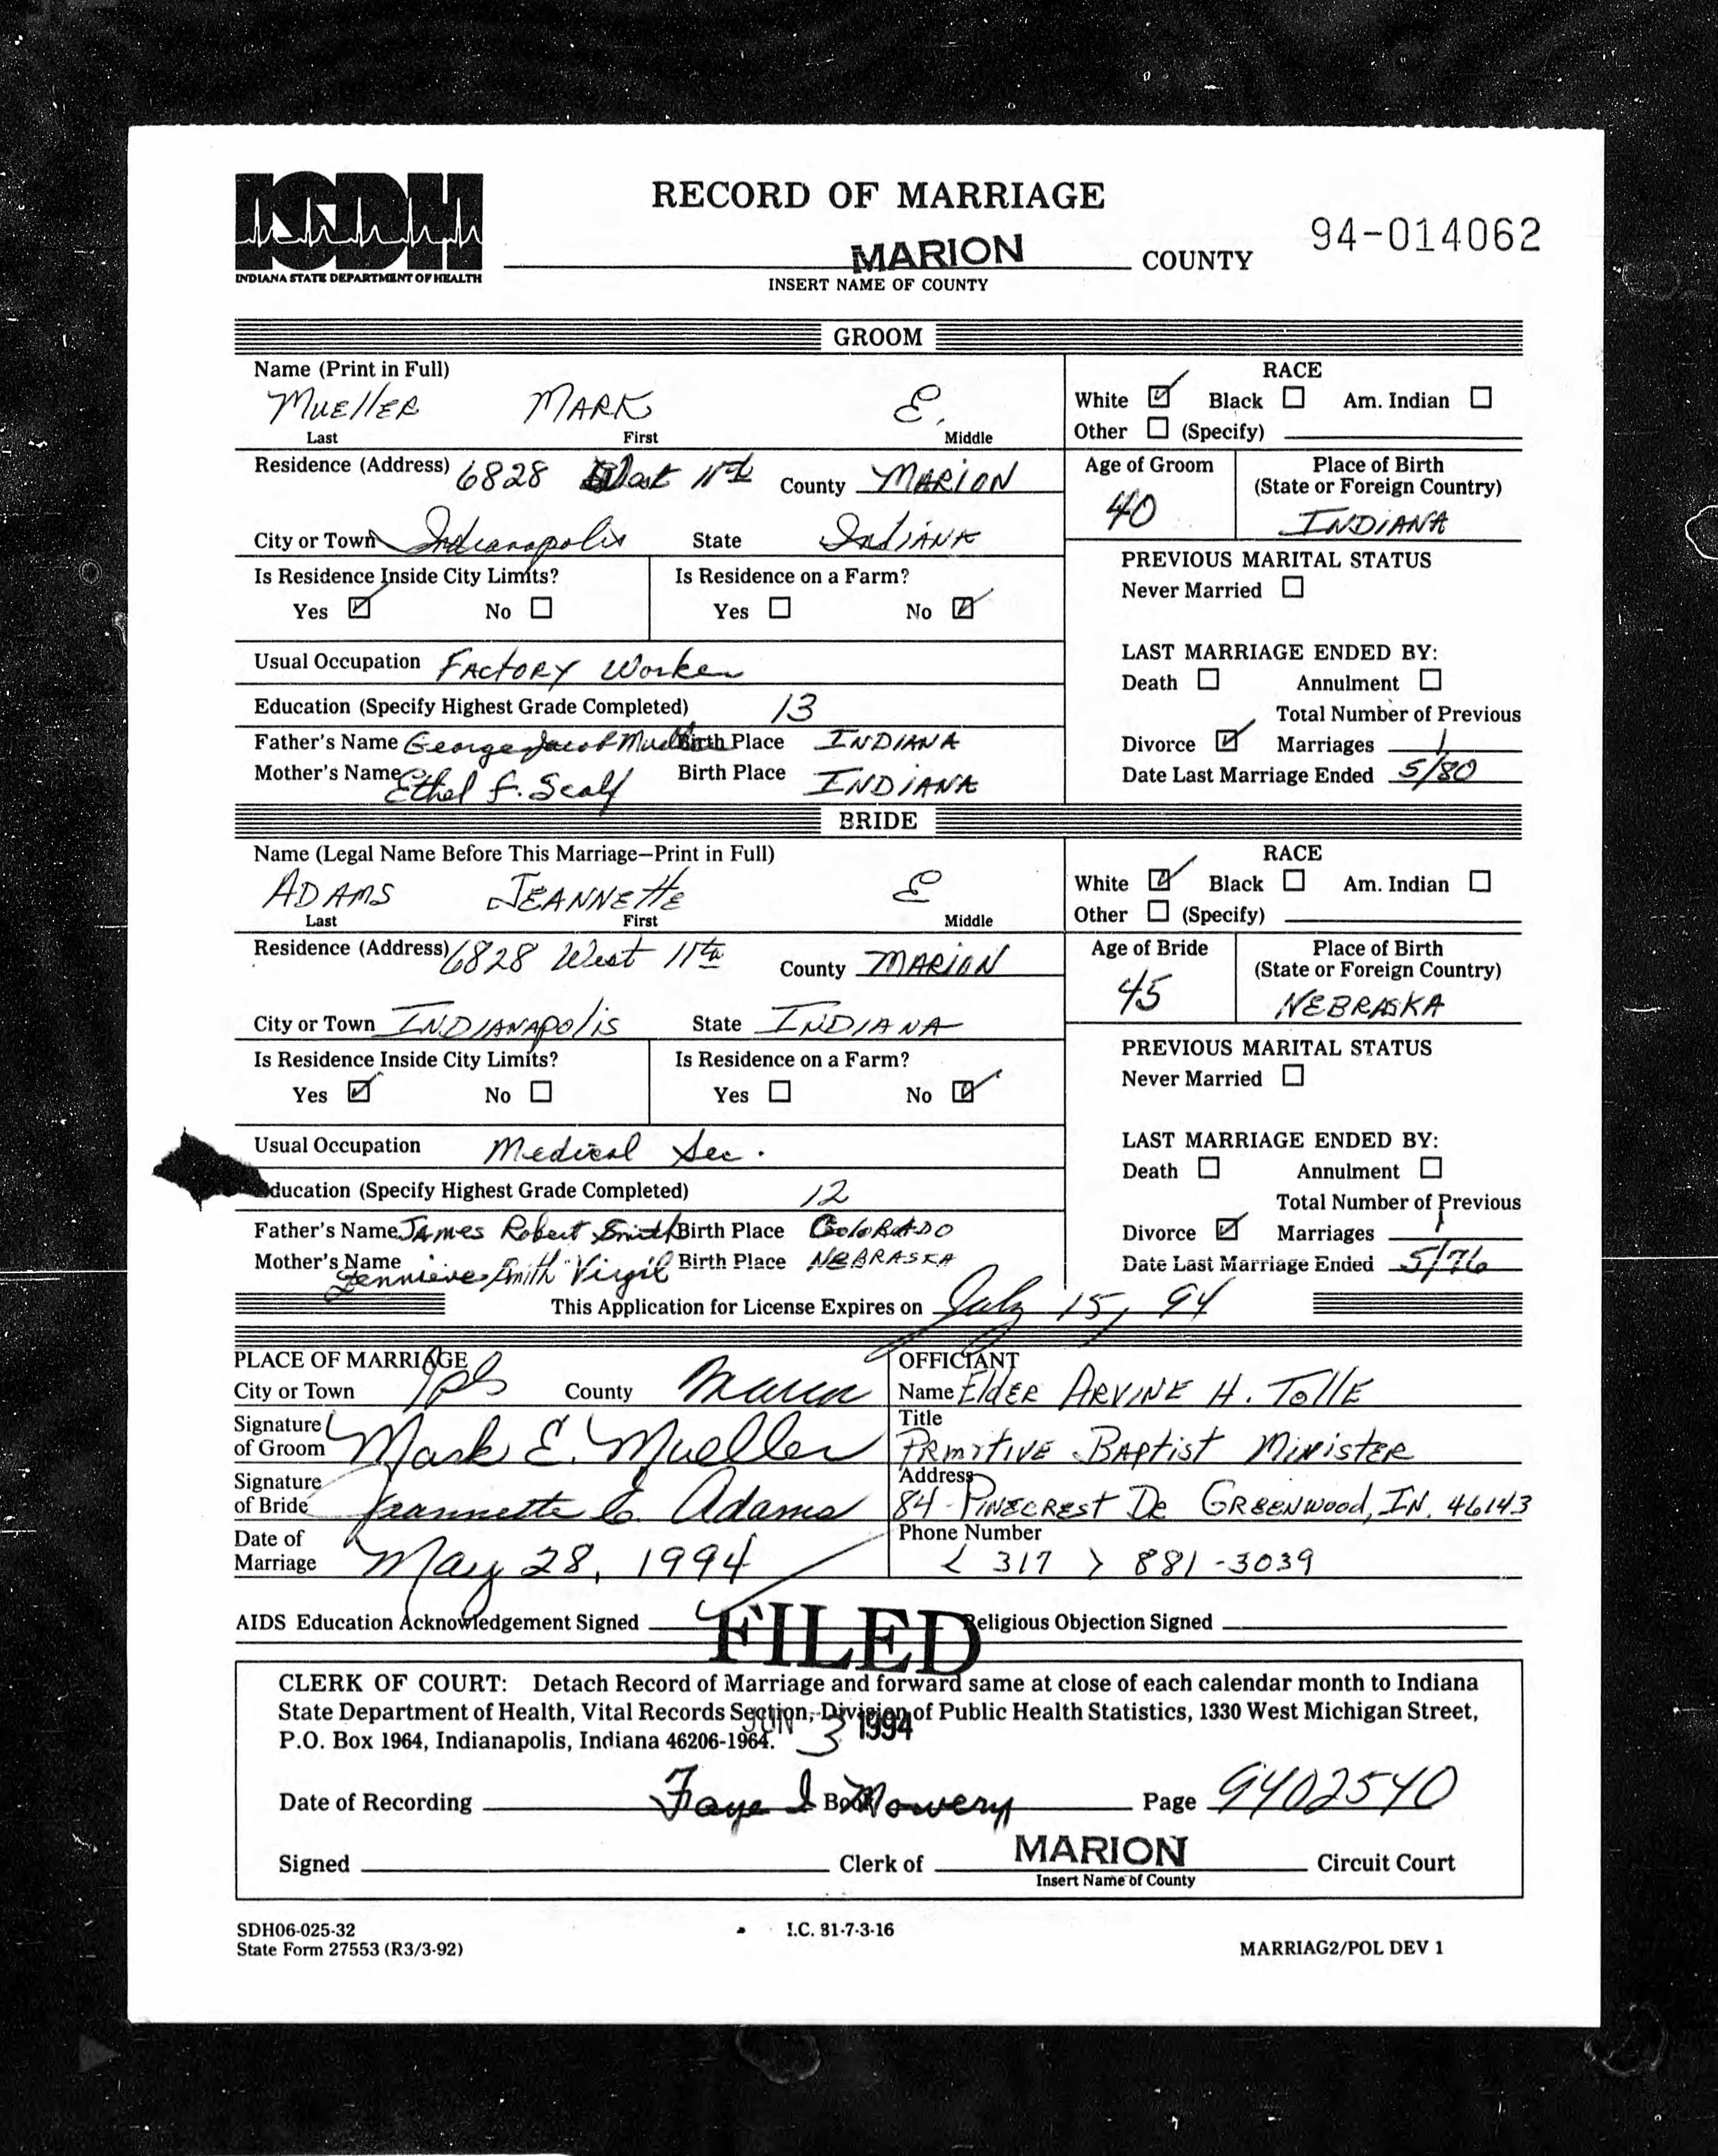 ISDH
INDIANA STATE DEPARTMENT OF HEALTH
RECORD OF MARRIAGE
94-014062
MARION COUNTY
INSERT NAME OF COUNTY
GROOM
Name (Print in Full)
MUELLER MARK E.
Last First Middle
RACE
White ☑ Black ☐ Am. Indian ☐
Other ☐ (Specify)
Residence (Address) 6828 West 11th County MARION
City or Town Indianapolis State INDIANA
Age of Groom
40
Place of Birth
(State or Foreign Country)
INDIANA
Is Residence Inside City Limits?
Yes ☑ No ☐
Is Residence on a Farm?
Yes ☐ No ☑
PREVIOUS MARITAL STATUS
Never Married ☐
Usual Occupation FACTORY Worker
Education (Specify Highest Grade Completed) 13
Father's Name George Jacob Mueller Birth Place INDIANA
Mother's Name Ethel F. Scalf Birth Place INDIANA
LAST MARRIAGE ENDED BY:
Death ☐ Annulment ☐
Total Number of Previous
Divorce ☑ Marriages 1
Date Last Marriage Ended 5/80
BRIDE
Name (Legal Name Before This Marriage–Print in Full)
ADAMS JEANNETTE E
Last First Middle
RACE
White ☑ Black ☐ Am. Indian ☐
Other ☐ (Specify)
Residence (Address) 6828 West 11th County MARION
City or Town INDIANAPOLIS State INDIANA
Age of Bride
45
Place of Birth
(State or Foreign Country)
NEBRASKA
Is Residence Inside City Limits?
Yes ☑ No ☐
Is Residence on a Farm?
Yes ☐ No ☑
PREVIOUS MARITAL STATUS
Never Married ☐
Usual Occupation Medical Sec.
Education (Specify Highest Grade Completed) 12
Father's Name JAMES Robert Smith Birth Place COLORADO
Mother's Name Smith Virgil Birth Place NEBRASKA
LAST MARRIAGE ENDED BY:
Death ☐ Annulment ☐
Total Number of Previous
Divorce ☑ Marriages 1
Date Last Marriage Ended 5/76
This Application for License Expires on July 15, 94
PLACE OF MARRIAGE
City or Town Ipls County Marion
Signature of Groom Mark E. Mueller
Signature of Bride Jeannette E. Adams
Date of Marriage May 28, 1994
OFFICIANT
Name Elder ARVINE H. TOLLE
Title
PRMITIVE BAPTIST MINISTER
Address
84 PINECREST DR GREENWOOD, IN. 46143
Phone Number
( 317 ) 881-3039
AIDS Education Acknowledgement Signed Religious Objection Signed
FILED
CLERK OF COURT: Detach Record of Marriage and forward same at close of each calendar month to Indiana
State Department of Health, Vital Records Section, Division of Public Health Statistics, 1330 West Michigan Street,
P.O. Box 1964, Indianapolis, Indiana 46206-1964.
JUN 3 1994
Date of Recording Faye I Mowery Book Page 9402540
Signed Clerk of MARION Circuit Court
Insert Name of County
SDH06-025-32
State Form 27553 (R3/3-92)
I.C. 31-7-3-16
MARRIAG2/POL DEV 1